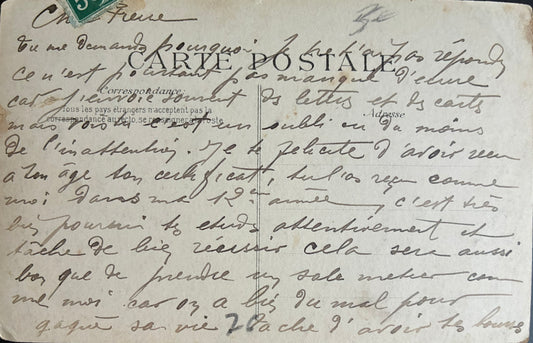 Cher Frère
Tu me demandes pourquoi je ne t'ai pas répondu
CARTE POSTALE
ce n'est pourtant pas manque d'encre
Correspondance
car j'envoie souvent des lettres et des cartes
Tous les pays étrangers n'acceptent pas la
correspondance au recto, se renseigner à la poste
Adresse
mais vois c'est un oubli ou du moins
de l'inattention. Je te felicite d'avoir reçu
a ton âge ton certificat, tu l'as reçu comme
moi dans ma 12ème année, c'est très
bien poursuis tes etuds attentivement et
tâche de bien réussir cela sera aussi
bon que de prendre un sale metier com
me moi car on a bien du mal pour
gagné sa vie tâche d'avoir tes bourses
20